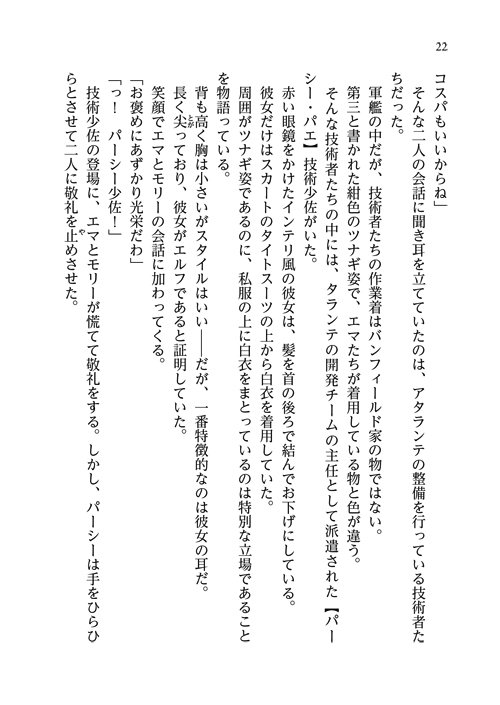 22
コスパもいいからね」
　そんな二人の会話に聞き耳を立てていたのは、アタランテの整備を行っている技術者た
ちだった。
　軍艦の中だが、技術者たちの作業着はバンフィールド家の物ではない。
　第三と書かれた紺色のツナギ姿で、エマたちが着用している物と色が違う。
　そんな技術者たちの中には、タランテの開発チームの主任として派遣された【パー
シー・パエ】技術少佐がいた。
　赤い眼鏡をかけたインテリ風の彼女は、髪を首の後ろで結んでお下げにしている。
　彼女だけはスカートのタイトスーツの上から白衣を着用していた。
　周囲がツナギ姿であるのに、私服の上に白衣をまとっているのは特別な立場であること
を物語っている。
　背も高く胸は小さいがスタイルはいい――だが、一番特徴的なのは彼女の耳だ。
　長く尖とがっており、彼女がエルフであると証明していた。
　笑顔でエマとモリーの会話に加わってくる。
「お褒めにあずかり光栄だわ」
「っ！　パーシー少佐！」
　技術少佐の登場に、エマとモリーが慌てて敬礼をする。しかし、パーシーは手をひらひ
らとさせて二人に敬礼を止やめさせた。